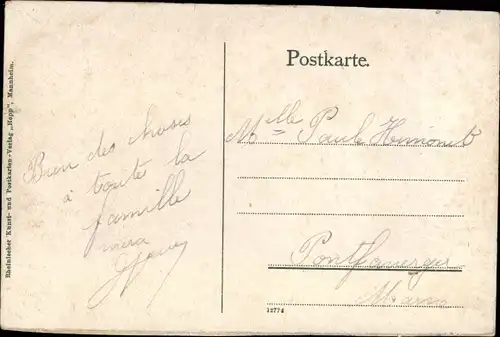 Postkarte.
Rheinischer Kunst- und Postkarten-Verlag „Hepp“, Mannheim.
Bien des choses
à toute la
famille
Melle Paule Hemonet
Pontfaverger
Marne
12774